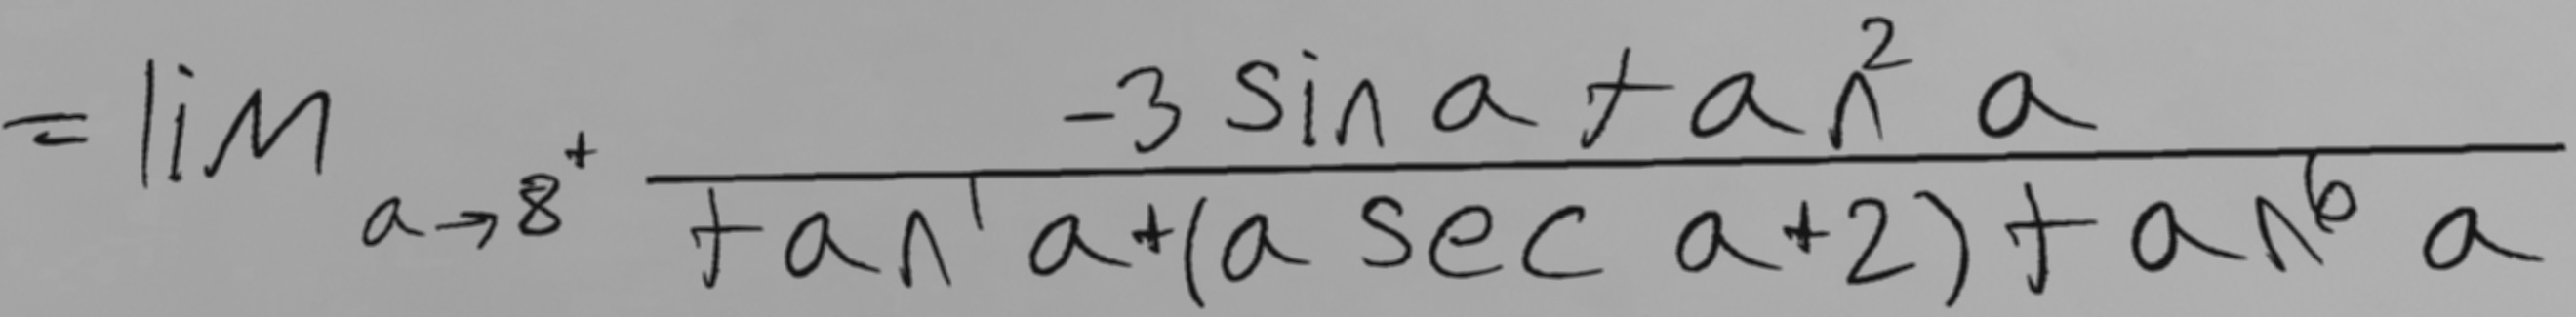 = \lim_{a \to 8^+} \frac{-3 \sin a \tan^2 a}{\tan^1 a + (a \sec a + 2) \tan^6 a}